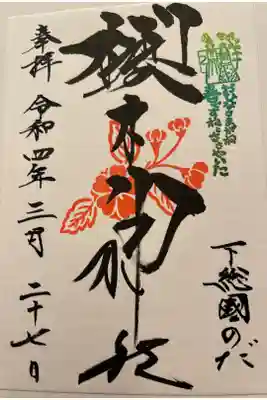 下総國のだ
櫻木神社
奉拝 令和四年三月二十七日